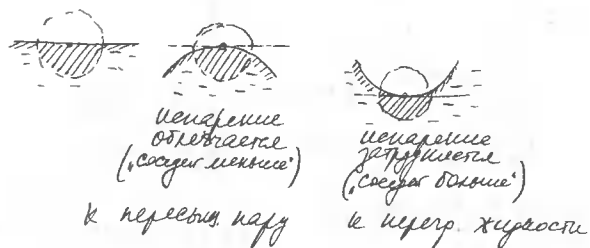 испарение
облегчается
(„соседей меньше“)
к пересыщ. пару
испарение
затрудняется
(„соседей больше“)
к перегр. жидкости